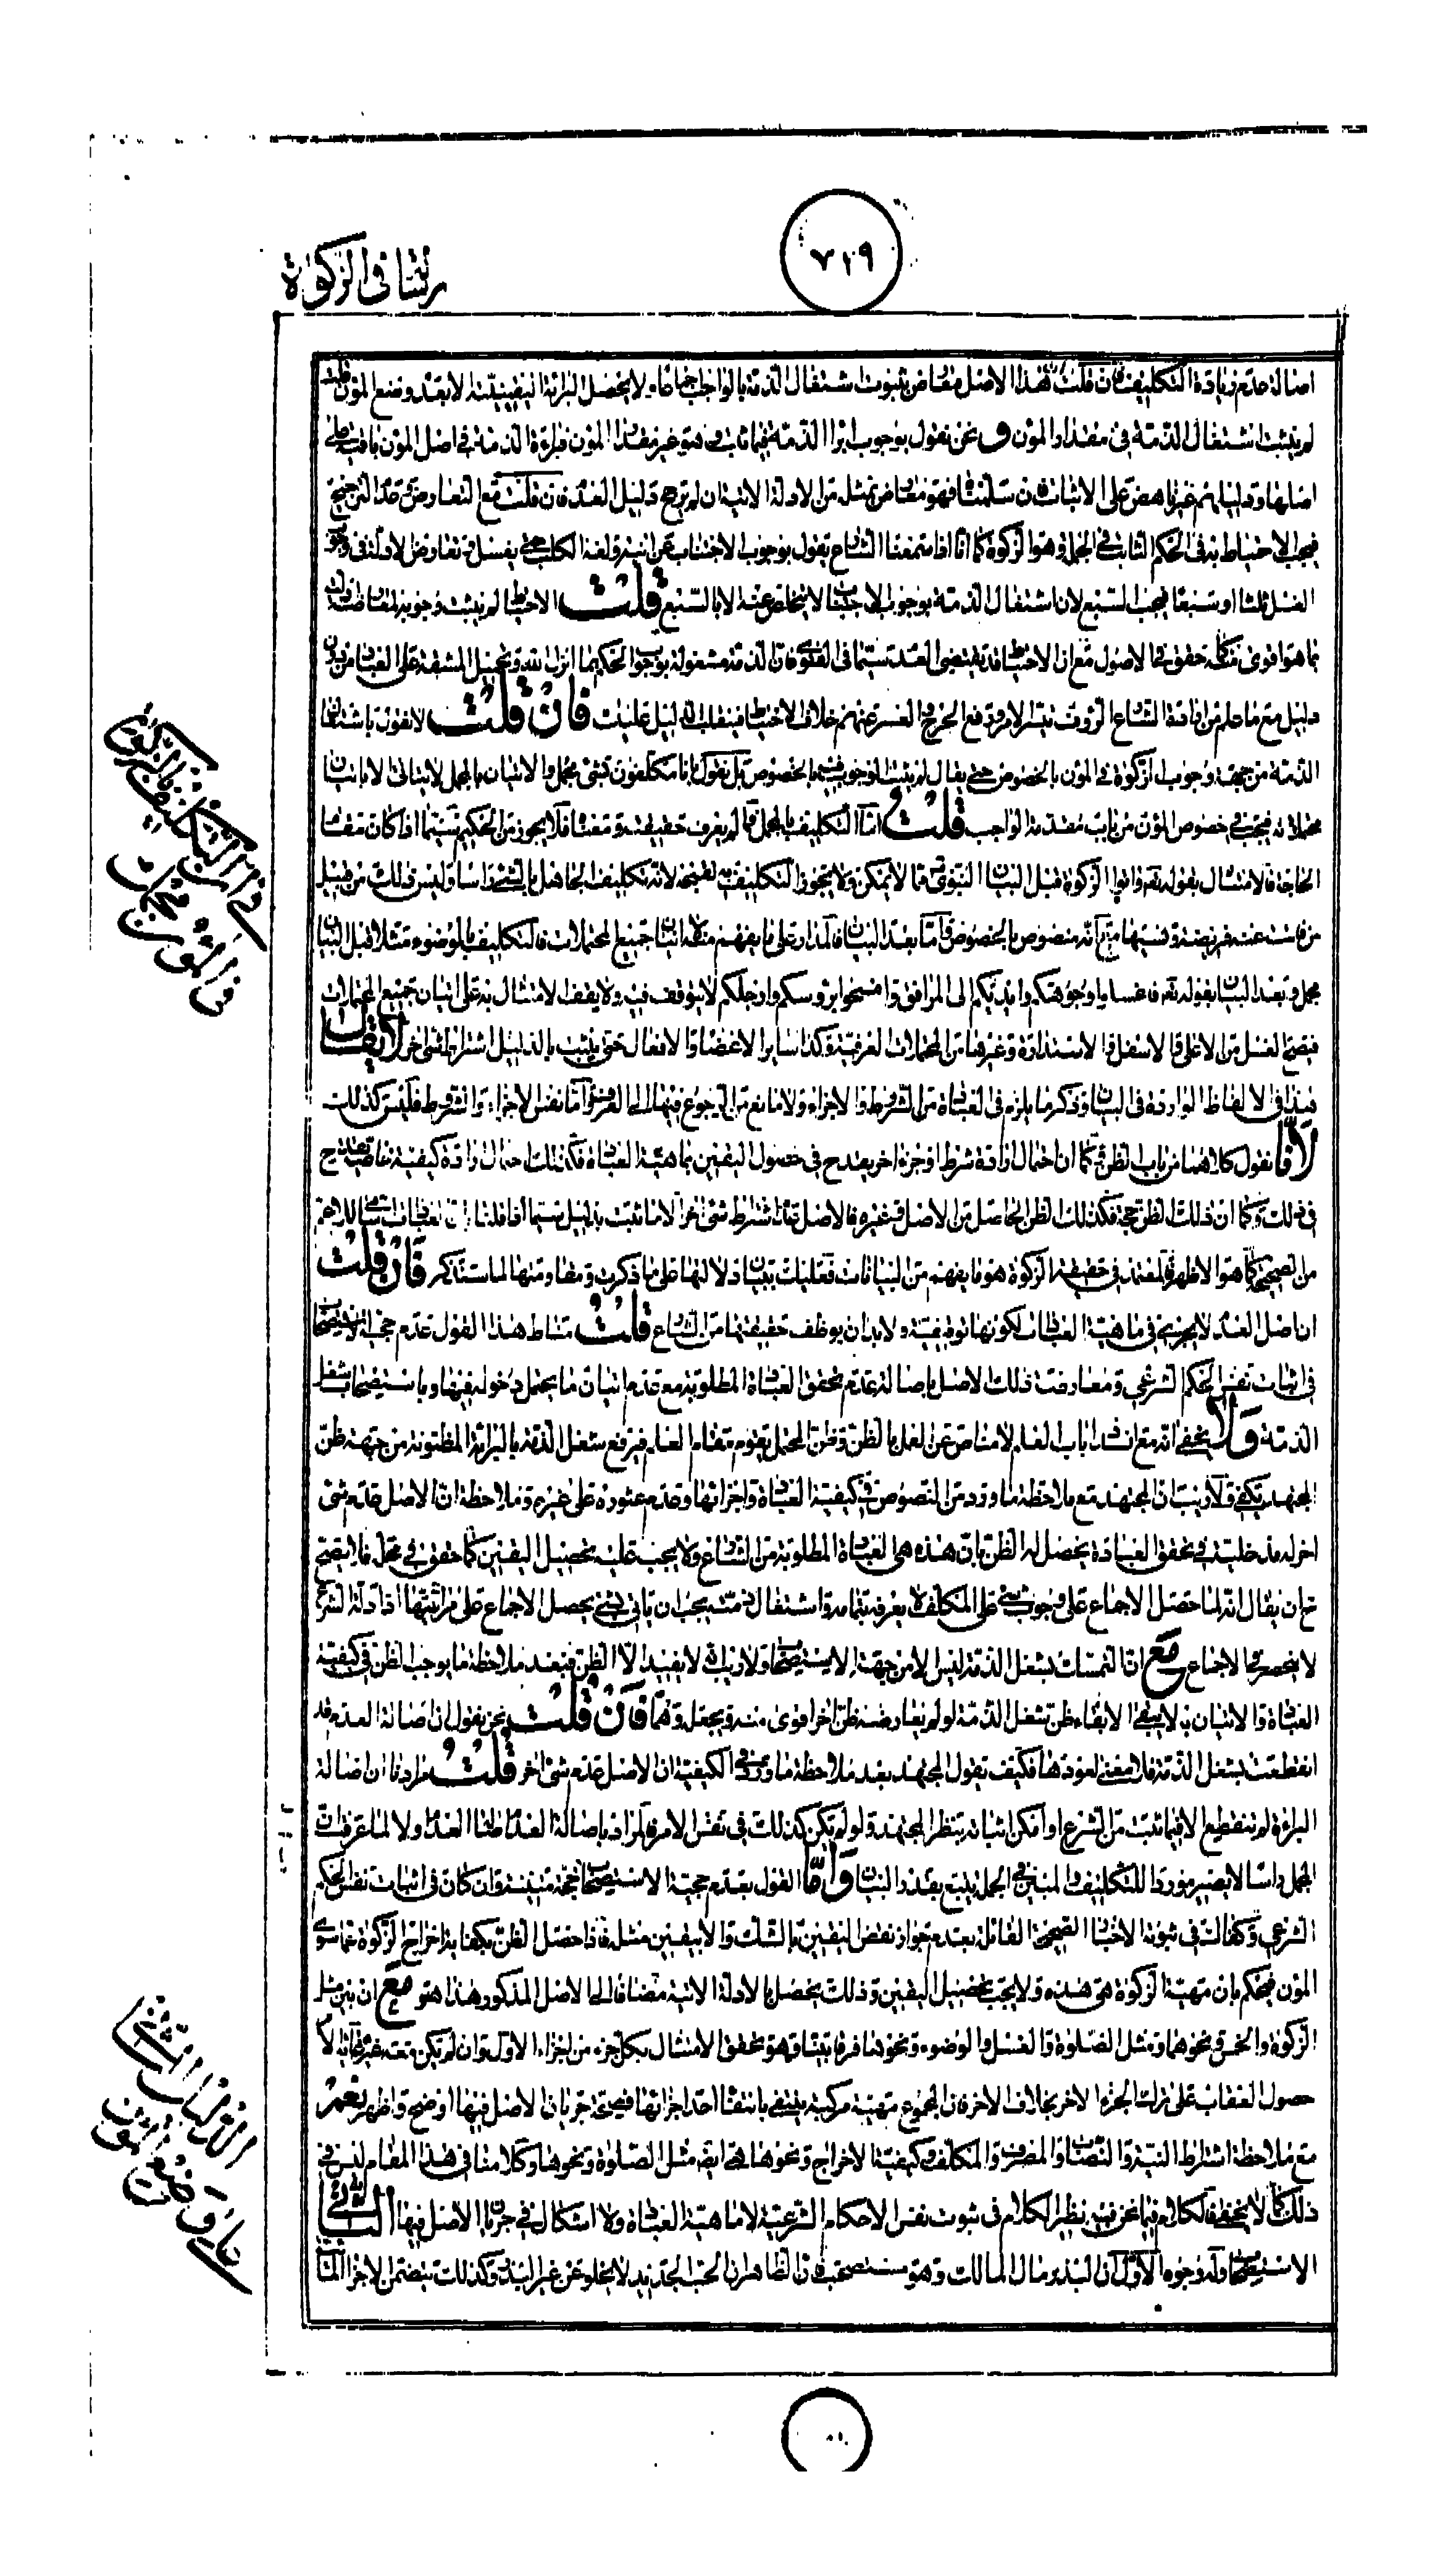 ٧٢٩
رسالة في الزكوة
اصالة عدم زيادة التكليف فان قلت هذا الاصل معارض بثبوت اشتغال الذمة بالواجب فلا يحصل البرائة اليقينية الا بعد وضع المؤن قلت
لم يثبت اشتغال الذمة في مقدار المؤن ونحن نقول بوجوب ابراء الذمة فيما ثابت وهو غير مقدار المؤن فبراءة الذمة في اصل المؤن باقية على
اصلها ودليلهم غير ناهض على الاثبات وان سلمنا فهو معارض بمثله من الادلة الاتية ان لم يرجح دليل العدم فان قلت مع التعارض وفقد الترجيح
فيجب الاحتياط في الحكم الثابت في الجملة وهو الزكوة كما انا اذا سمعنا الشارع يقول بوجوب الاجتناب عن انية ولغ الكلب حتى يغسل وتعارض الادلة في وجوب
الغسل ثلثا او سبعا فيجب السبع لان اشتغال الذمة بوجوب الاجتناب لا يتخلص عنه الا بالسبع قلت الاحتياط لم يثبت وجوبه لمعارضة دليله
بما هو اقوى منه كما حقق في الاصول مع ان الاحتياط قد يقتضي العدم سيما في الفتوى فان الذمة مشغولة بوجوب الحكم بما انزل الله وتحميل المشقة على العباد من دون
دليل مع ما علم من ارادة الشارع الرؤف تيسر الامر ورفع الحرج والعسر عنهم خلاف الاحتياط فينقلب الدليل عليك فان قلت لا نقول باشتغال
الذمة من جهة وجوب الزكوة في المؤن بالخصوص حتى يقال لم يثبت الوجوب فيها بالخصوص بل نقول بانا مكلفون بشئ مجمل والاتيان بالمجمل لا يتاتى الا باتيان
محتملاته فيجب في خصوص المؤن من باب مقدمة الواجب قلت اما التكليف بالمجمل فما لم يعرف حقيقته ومعناه فلا يجوز من الحكيم سيما اذا كان مقتضى
الحاجة فالامتثال بقوله تعالى واتوا الزكوة قبل البيان النبوي مما لا يمكن ولا يجوز التكليف به لقبحه لانه تكليف الجاهل بالشئ راسا وليس ذلك من قبيل
من فاتت عنه فريضة ونسيها من انه منصوص بالخصوص واما بعد البيان فالمدار على ما يفهم منه لا اتيان جميع المحتملات فالتكليف بالوضوء مثلا قبل البيان
مجمل وبعد البيان بقوله تعالى فاغسلوا وجوهكم وايديكم الى المرافق وامسحوا برؤسكم وارجلكم لا يتوقف فيه ولا يقف الامتثال به على اتيان جميع المحتملات
فيصح الغسل من الاعلى والاسفل والاستدارة وغيرها من المحتملات العرفية وكذا سائر الاعضاء والافعال حتى يثبت بالدليل اشتراط شئ اخر لا يقال
هذا في الالفاظ الواردة في البيان وذكر ما يلزم في العبادة من الشروط والاجزاء ولا مانع من الرجوع فيها الى العرف واما نفس الاجزاء والشروط فليس كذلك
لانا نقول كلاهما من باب الظن فكما ان احتمال ارادة شرط او جزء اخر يقدح في حصول اليقين بماهية العبادة فكذلك احتمال ارادة كيفية خاصة يقدح
في ذلك وكما ان ذلك الظن حجة فكذلك الظن الحاصل من الاصل في غيره فالاصل عدم اشتراط شئ اخر الا ما ثبت بدليل سيما اذا قلنا بان العبادات اسامي للاعم
من الصحيح كما هو الاظهر فالمعتمد في حقيقة الزكوة هو ما يفهم من البيانات فعليك ببيان دلالتها على ما ذكرت ومقاومتها لما سنذكر فان قلت
ان اصل العدم لا يجري في ماهية العبادات لكونها توقيفية ولا بد ان يوظف حقيقتها من الشارع قلت مناط هذا القول عدم حجية الاستصحاب
في اثبات نفس الحكم الشرعي ومعارضة ذلك الاصل باصالة عدم تحقق العبادة المطلوبة مع عدم اتيان ما يحتمل دخوله فيها وباستصحاب شغل
الذمة ولا يخفى انه مع انسداد باب العلم لا مناص عن العمل بالظن وظن المجتهد يقوم مقام العلم فيرفع شغل الذمة بالبرائة المظنونة من جهة ظن
المجتهد يكفي ولا ريب ان المجتهد مع ملاحظة ما ورد من النصوص في كيفية العبادة واجزائها وعدم عثوره على غيره وملاحظة ان الاصل عدم شئ
اخر له مدخلية في تحقق العبادة يحصل له الظن بان هذه هي العبادة المطلوبة من الشارع ولا يجب عليه تحصيل اليقين كما حقق في محله فلا يصح
ح ان يقال انه لما حصل الاجماع على وجوب شئ على المكلف لا يعرفه بتمامه واشتغال ذمته يجب ان ياتي بشئ يحصل الاجماع على براءته اذ ادلة الشرع
لا تنحصر في الاجماع مع ان التمسك بشغل الذمة ليس الا من جهة الاستصحاب ولا ريب انه لا يفيد الا الظن فبعد ملاحظة ما يوجب الظن في كيفية
العبادة والاتيان به لا يبقى الا بقاء ظن شغل الذمة لو لم يعارضه ظن اخر اقوى منه ويجعله وهما فان قلت نحن نقول ان اصالة العدم قد
انقطعت بشغل الذمة فلا معنى لعودها فكيف تقول المجتهد بعد ملاحظة ما ورد في الكيفية ان الاصل عدم شئ اخر قلت مرادنا ان اصالة
البراءة لم تنقطع الا فيما ثبت من الشرع او امكن اثباته بنظر المجتهد ولو لم يكن كذلك في نفس الامر فالمراد باصالة العدم ولا لما عرفت ان
المجمل راسا لا يصير موردا للتكليف والمبين في الجملة يتبع بقدر البيان واما القول بعدم حجية الاستصحاب فحجة مبينة وان كان في اثبات نفس الحكم
الشرعي وكفاك في ثبوته الاخبار الصحيحة القائلة بعدم جواز نقض اليقين بالشك والا بيقين مثله فاذا حصل الظن يكفيه اخراج الزكوة عما سوى
المؤن فيحكم بان مهية الزكوة هي هذه ولا يجب تحصيل اليقين وذلك يحصل بالادلة الاتية مضافا الى الاصل المذكور هذا هو مع ان بين مثل
الزكوة والخمس ونحوهما ومثل الصلوة والغسل والوضوء ونحوها فرقا بينا وهو تحقق الامتثال بكل جزء من اجزاء الاول وان لم يكن معه غيره غايته
حصول العقاب على ترك الجزء الاخر بخلاف الاخر فان المجموع مهية مركبة ينتفي بانتفاء احد اجزائها فصحة جريان الاصل فيها اوضح واظهر نعم
مع ملاحظة اشتراط النية والنصاب والمصرف والمكلف وكيفية الاخراج ونحوها هي ايضا مثل الصلوة ونحوها وكلامنا في هذا المقام ليس في
ذلك كما لا يخفى فالكلام فيما نحن فيه نظير الكلام في ثبوت نفس الاحكام الشرعية لا ماهية العبادة ولا اشكال في جريان الاصل فيها الثاني
الاستصحاب وله وجوه الاول ان البذر مال المالك وهو مستصحب فان الظاهر ان الحب الجديد لا يخلو عن غير البذر وكذلك يتضمن الاجزاء